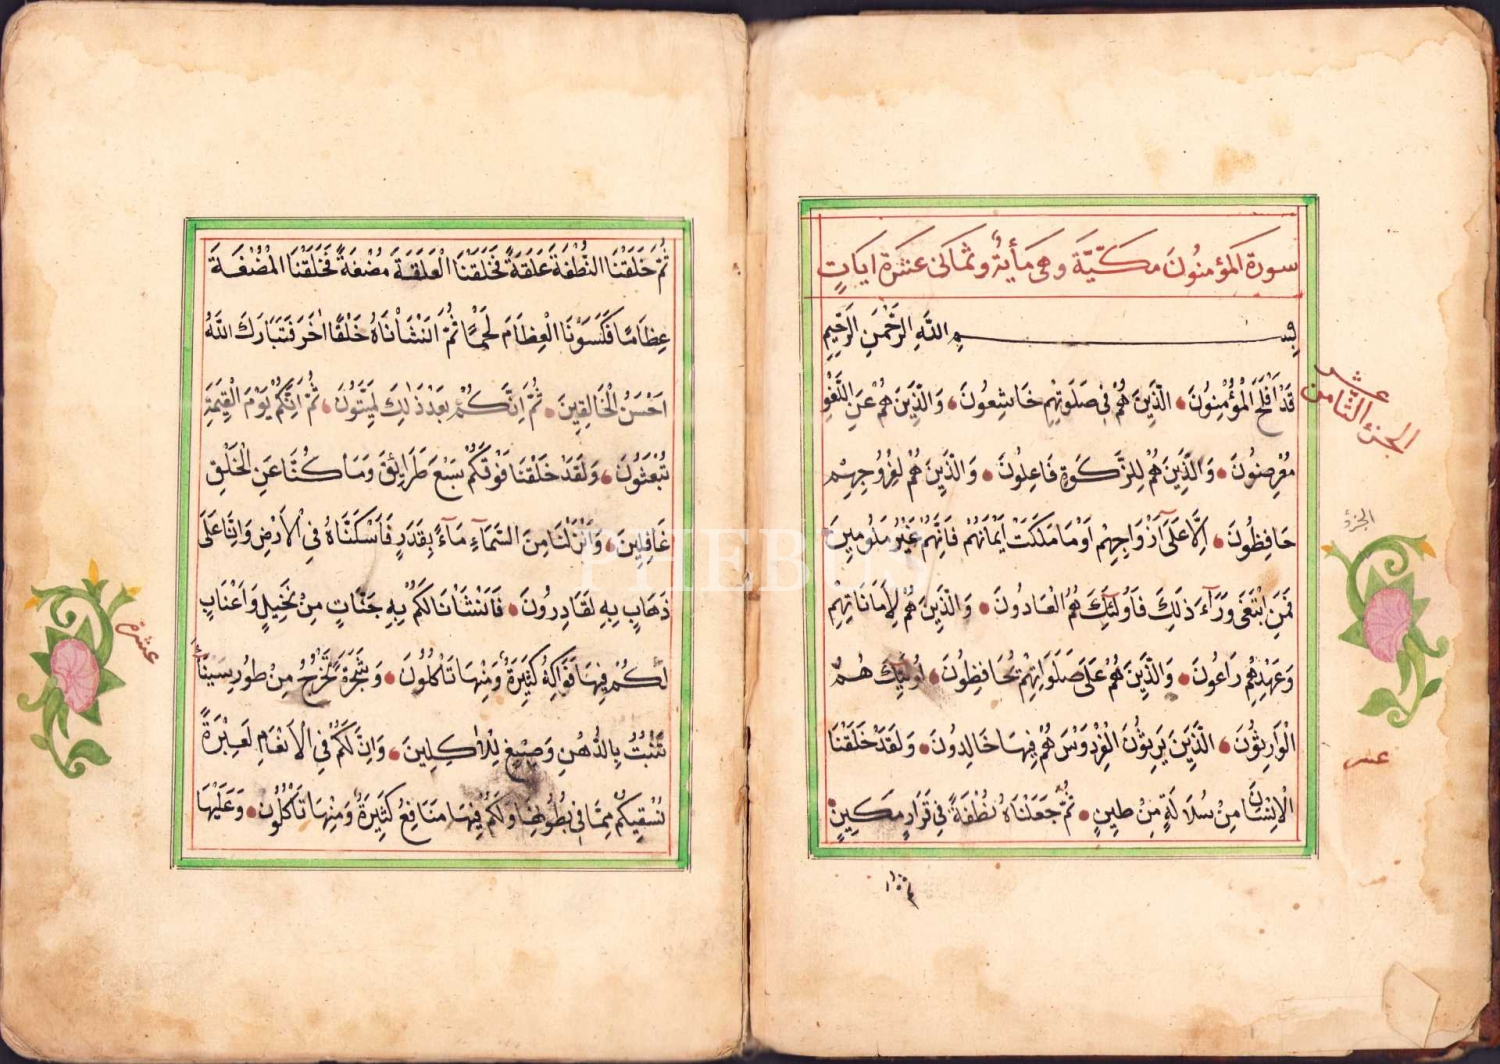 سورة المؤمنون مكيّة وهى مأية وثمانى عشرة ايات
بِسْمِ اللّهِ الرَّحْمنِ الرَّحِيمِ
قَدْ اَفْلَحَ الْمُؤْمِنُونَ الَّذِينَ هُمْ فِى صَلَوتِهِمْ خَاشِعُونَ وَالَّذِينَ هُمْ عَنِ اللَّغْوِ
مُعْرِضُونَ وَالَّذِينَ هُمْ لِلزَّكَوةِ فَاعِلُونَ وَالَّذِينَ هُمْ لِفُرُوجِهِمْ
حَافِظُونَ اِلَّا عَلَى اَزْوَاجِهِمْ اَوْ مَا مَلَكَتْ اَيْمَانُهُمْ فَاِنَّهُمْ غَيْرُ مَلُومِينَ
فَمَنِ ابْتَغَى وَرَآءَ ذَلِكَ فَاُولَئِكَ هُمُ الْعَادُونَ وَالَّذِينَ هُمْ لِاَمَانَاتِهِمْ
وَعَهْدِهِمْ رَاعُونَ وَالَّذِينَ هُمْ عَلَى صَلَوَاتِهِمْ يُحَافِظُونَ اُولَئِكَ هُمُ
الْوَارِثُونَ الَّذِينَ يَرِثُونَ الْفِرْدَوْسَ هُمْ فِيهَا خَالِدُونَ وَلَقَدْ خَلَقْنَا
الْاِنْسَانَ مِنْ سُلَالَةٍ مِنْ طِينٍ ثُمَّ جَعَلْنَاهُ نُطْفَةً فِى قَرَارٍ مَكِينٍ
الجزء الثامن عشر
الجزء
عشر
ثُمَّ خَلَقْنَا النُّطْفَةَ عَلَقَةً فَخَلَقْنَا الْعَلَقَةَ مُضْغَةً فَخَلَقْنَا الْمُضْغَةَ
عِظَامًا فَكَسَوْنَا الْعِظَامَ لَحْمًا ثُمَّ اَنْشَأْنَاهُ خَلْقًا اٰخَرَ فَتَبَارَكَ اللّهُ
اَحْسَنُ الْخَالِقِينَ ثُمَّ اِنَّكُمْ بَعْدَ ذٰلِكَ لَمَيِّتُونَ ثُمَّ اِنَّكُمْ يَوْمَ الْقِيمَةِ
تُبْعَثُونَ وَلَقَدْ خَلَقْنَا فَوْقَكُمْ سَبْعَ طَرَايِقَ وَمَا كُنَّا عَنِ الْخَلْقِ
غَافِلِينَ وَاَنْزَلْنَا مِنَ السَّمَآءِ مَآءً بِقَدَرٍ فَاَسْكَنَّاهُ فِى الْاَرْضِ وَاِنَّا عَلَى
ذَهَابٍ بِهِ لَقَادِرُونَ فَاَنْشَأْنَا لَكُمْ بِهِ جَنَّاتٍ مِنْ نَخِيلٍ وَاَعْنَابٍ
لَكُمْ فِيهَا فَوَاكِهُ كَثِيرَةٌ وَمِنْهَا تَأْكُلُونَ وَشَجَرَةً تَخْرُجُ مِنْ طُورِ سَيْنَآءَ
تَنْبُتُ بِالدُّهْنِ وَصِبْغٍ لِلْاٰكِلِينَ وَاِنَّ لَكُمْ فِى الْاَنْعَامِ لَعِبْرَةً
نُسْقِيكُمْ مِمَّا فِى بُطُونِهَا وَلَكُمْ فِيهَا مَنَافِعُ كَثِيرَةٌ وَمِنْهَا تَأْكُلُونَ وَعَلَيْهَا
عشرة
PHEBUS